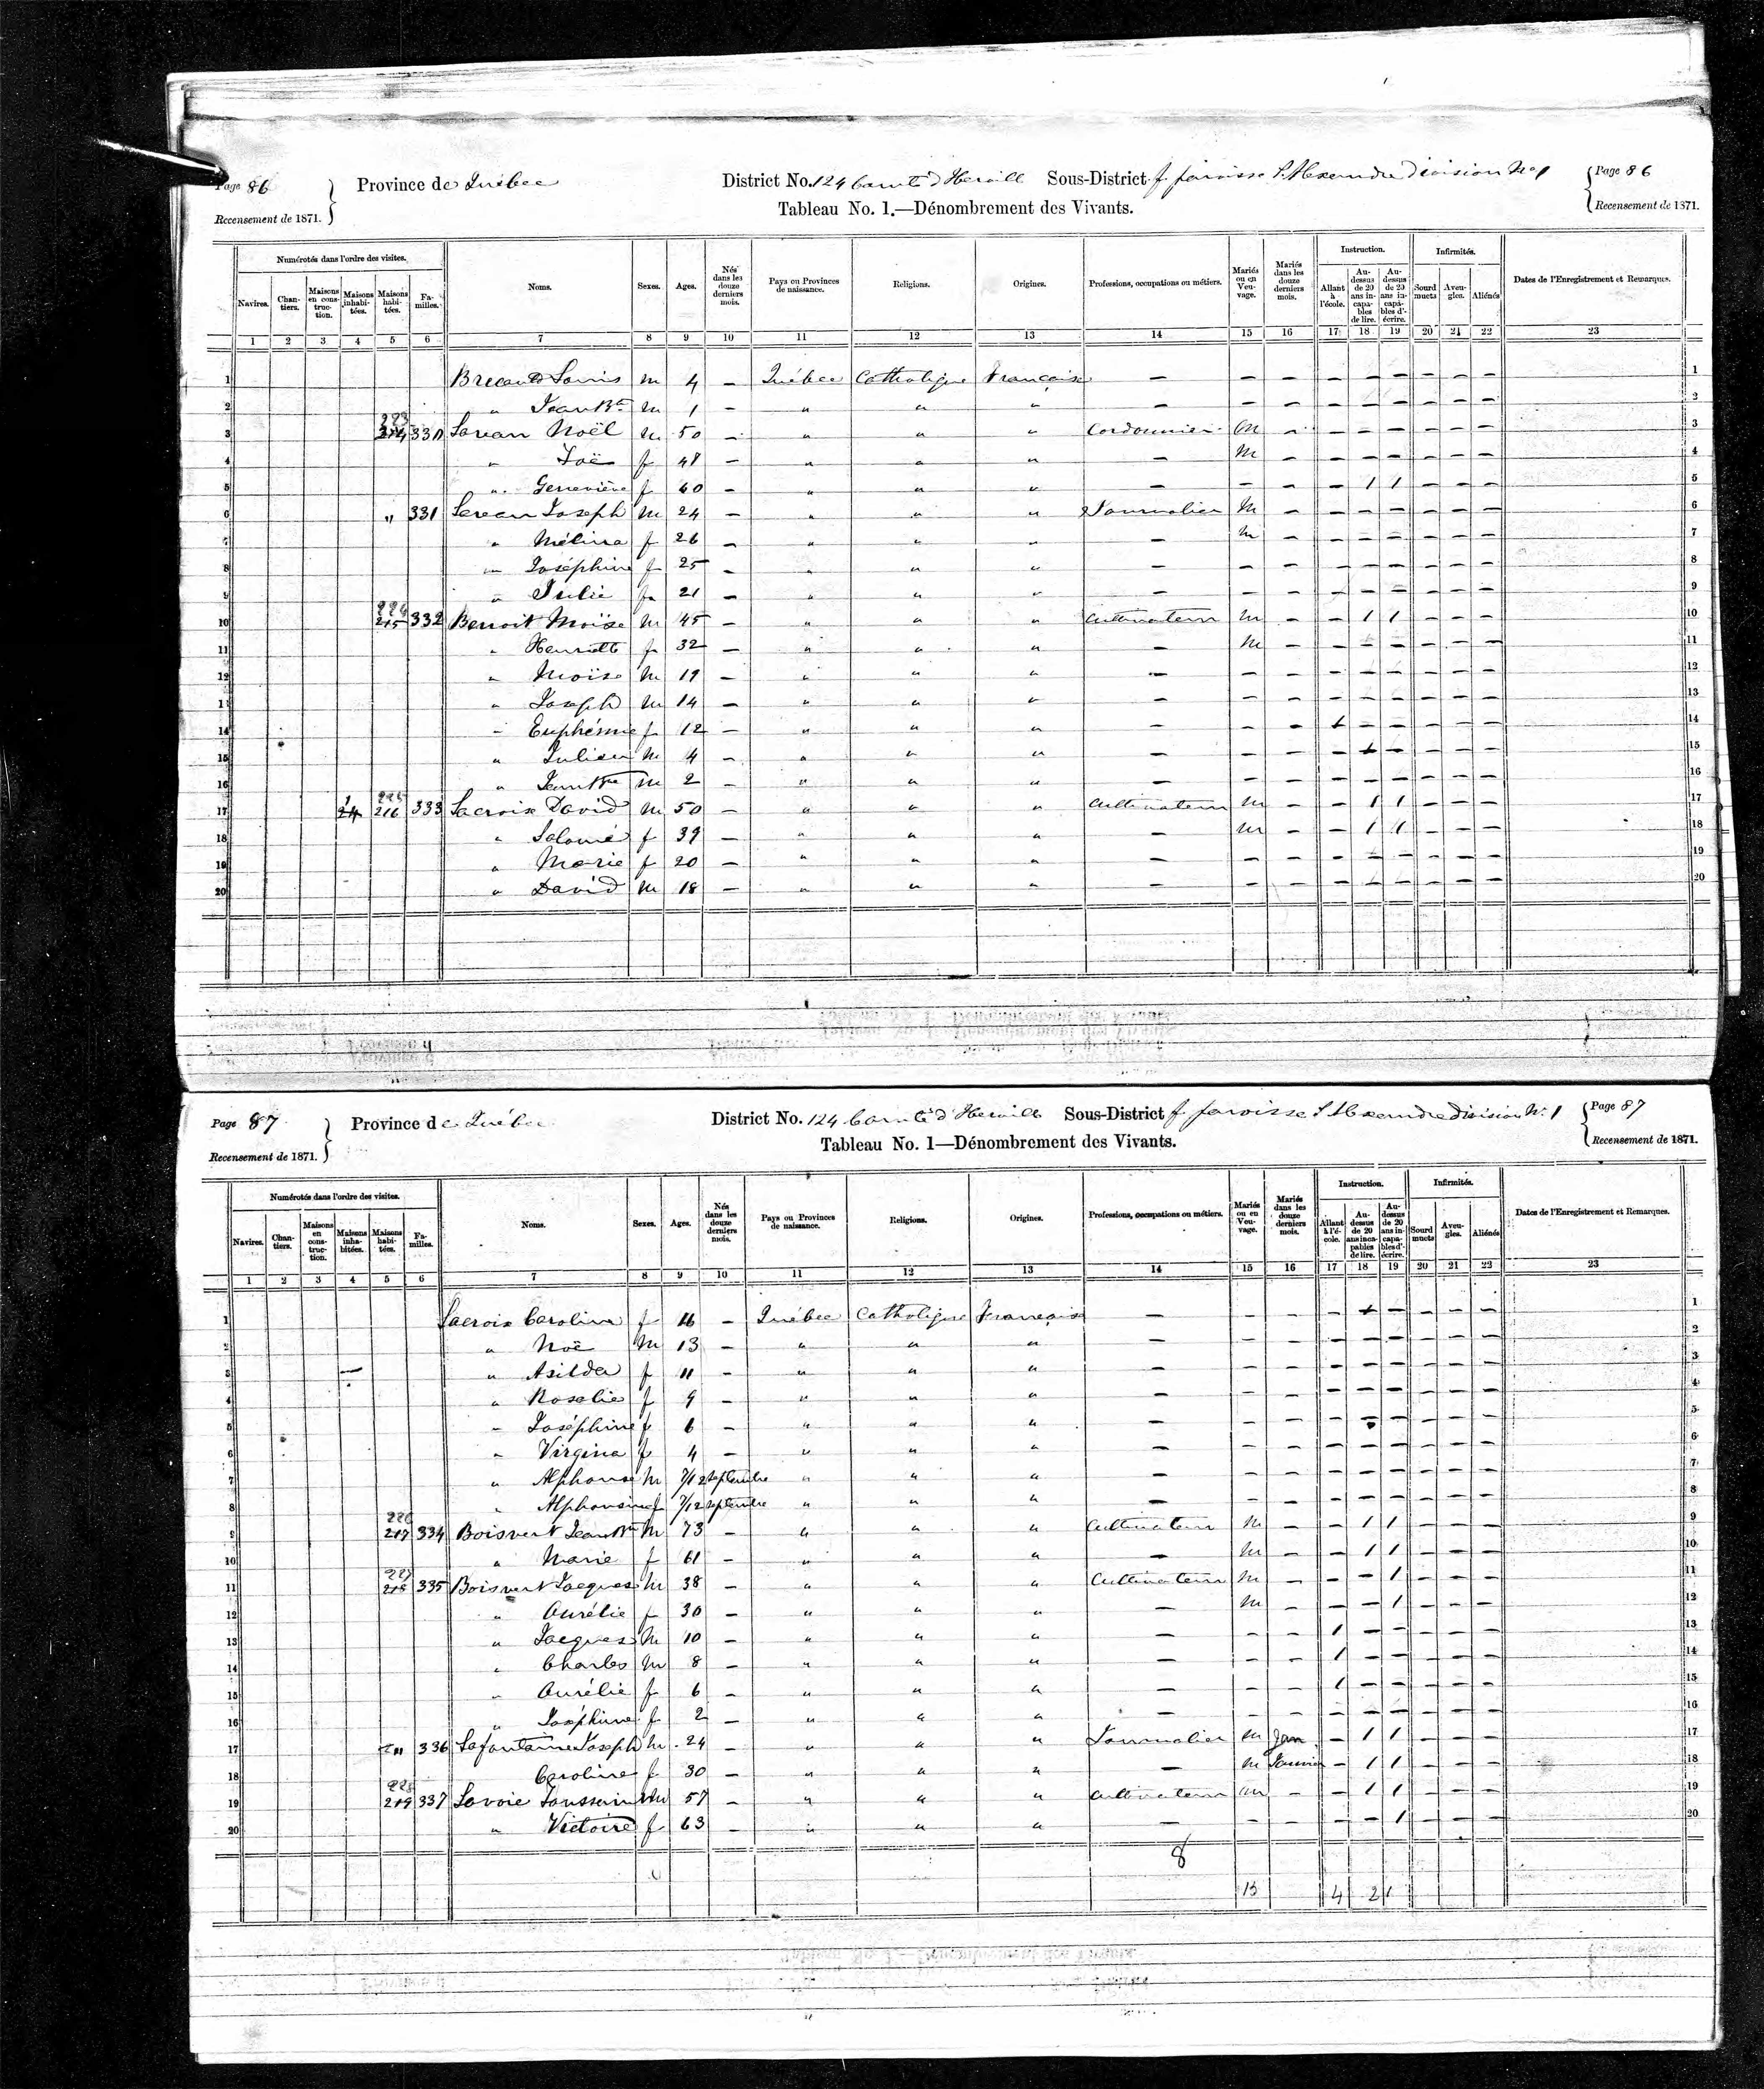 Page 86
Province de Québec
District No. 124 Comté d'Iberville Sous-District f paroisse St Alexandre division No 1
Page 86
Recensement de 1871.
Tableau No. 1.—Dénombrement des Vivants.
Recensement de 1871.
Numérotés dans l'ordre des visites.
Instruction. Infirmités.
Navires. Chan-tiers. Maisons en cons-truc-tion. Maisons inhabi-tées. Maisons habi-tées. Fa-milles. Noms. Sexes. Ages. Nés dans les douze derniers mois. Pays ou Provinces de naissance. Religions. Origines. Professions, occupations ou métiers. Mariés ou en Veu-vage. Mariés dans les douze derniers mois. Allant à l'école. Au-dessus de 20 ans in-capa-bles de lire. Au-dessus de 20 ans in-capa-bles d'-écrire. Sourd muets Aveu-gles. Aliénés Dates de l'Enregistrement et Remarques.
1 2 3 4 5 6 7 8 9 10 11 12 13 14 15 16 17 18 19 20 21 22 23
1 Louis m 4 — Québec Catholique Française — — — — — — — — — 1
2 " Jean Bte m 1 — " " " — — — — — — — — — 2
3 223 214 330 Noël m 50 — " " " Cordonnier m — — — — — — — 3
4 " Zoë f 48 — " " " — m — — — — — — — 4
5 " Geneviève f 60 — " " " — — — — 1 1 — — — 5
6 " 331 Joseph m 24 — " " " Journalier m — — — — — — — 6
7 " Mélina f 26 — " " " — m — — — — — — — 7
8 " Joséphine f 25 — " " " — — — — — — — — — 8
9 " Julie f 21 — " " " — — — — — — — — — 9
10 224 215 332 Benoit Moïse m 45 — " " " Cultivateur m — — 1 1 — — — 10
11 " Henriette f 32 — " " " — m — — — — — — — 11
12 " Moïse m 19 — " " " — — — — — — — — — 12
13 " Joseph m 14 — " " " — — — — — — — — — 13
14 " Euphémie f 12 — " " " — — — 1 — — — — — 14
15 " Julien m 4 — " " " — — — — — — — — — 15
16 " Jean Bte m 2 — " " " — — — — — — — — — 16
17 1 24 225 216 333 Lacroix David m 50 — " " " Cultivateur m — — 1 1 — — — 17
18 " Salomé f 39 — " " " — m — — 1 1 — — — 18
19 " Marie f 20 — " " " — — — — — — — — — 19
20 " David m 18 — " " " — — — — — — — — — 20
Page 87
Province de Québec
District No. 124 Comté d'Iberville Sous-District f paroisse St Alexandre division No. 1
Page 87
Recensement de 1871.
Tableau No. 1—Dénombrement des Vivants.
Recensement de 1871.
Numérotés dans l'ordre des visites.
Instruction. Infirmités.
Navires. Chan-tiers. Maisons en cons-truc-tion. Maisons inha-bitées. Maisons habi-tées. Fa-milles. Noms. Sexes. Ages. Nés dans les douze derniers mois. Pays ou Provinces de naissance. Religions. Origines. Professions, occupations ou métiers. Mariés ou en Veu-vage. Mariés dans les douze derniers mois. Allant à l'é-cole. Au-dessus de 20 ans inca-pables de lire. Au-dessus de 20 ans in-capa-bles d'-écrire. Sourd muets Aveu-gles. Aliénés Dates de l'Enregistrement et Remarques.
1 2 3 4 5 6 7 8 9 10 11 12 13 14 15 16 17 18 19 20 21 22 23
1 Lacroix Caroline f 16 — Québec Catholique Française — — — — — — — — — 1
2 " Noë m 13 — " " " — — — — — — — — — 2
3 " Asilda f 11 — " " " — — — — — — — — — 3
4 " Rosalie f 9 — " " " — — — — — — — — — 4
5 " Joséphine f 6 — " " " — — — — — — — — — 5
6 " Virginia f 4 — " " " — — — — — — — — — 6
7 " Alphonse m 7/12 septembre " " " — — — — — — — — — 7
8 " Alphonsine f 7/12 septembre " " " — — — — — — — — — 8
9 226 217 334 Boisvert Jean Bte m 73 — " " " Cultivateur m — — 1 1 — — — 9
10 " Marie f 61 — " " " — m — — 1 1 — — — 10
11 227 218 335 Boisvert Jacques m 38 — " " " Cultivateur m — — — 1 — — — 11
12 " Aurélie f 30 — " " " — m — — — 1 — — — 12
13 " Jacques m 10 — " " " — — — 1 — — — — — 13
14 " Charles m 8 — " " " — — — 1 — — — — — 14
15 " Aurélie f 6 — " " " — — — 1 — — — — — 15
16 " Joséphine f 2 — " " " — — — — — — — — — 16
17 " 336 Lafontaine Joseph m 24 — " " " Journalier m Jan — 1 1 — — — 17
18 Caroline f 30 — " " " — m Janvier — 1 1 — — — 18
19 228 219 337 Lavoie Toussaint m 57 — " " " Cultivateur m — — 1 1 — — — 19
20 " Victoire f 63 — " " " — — — — — 1 — — — 20
8
13 4 21